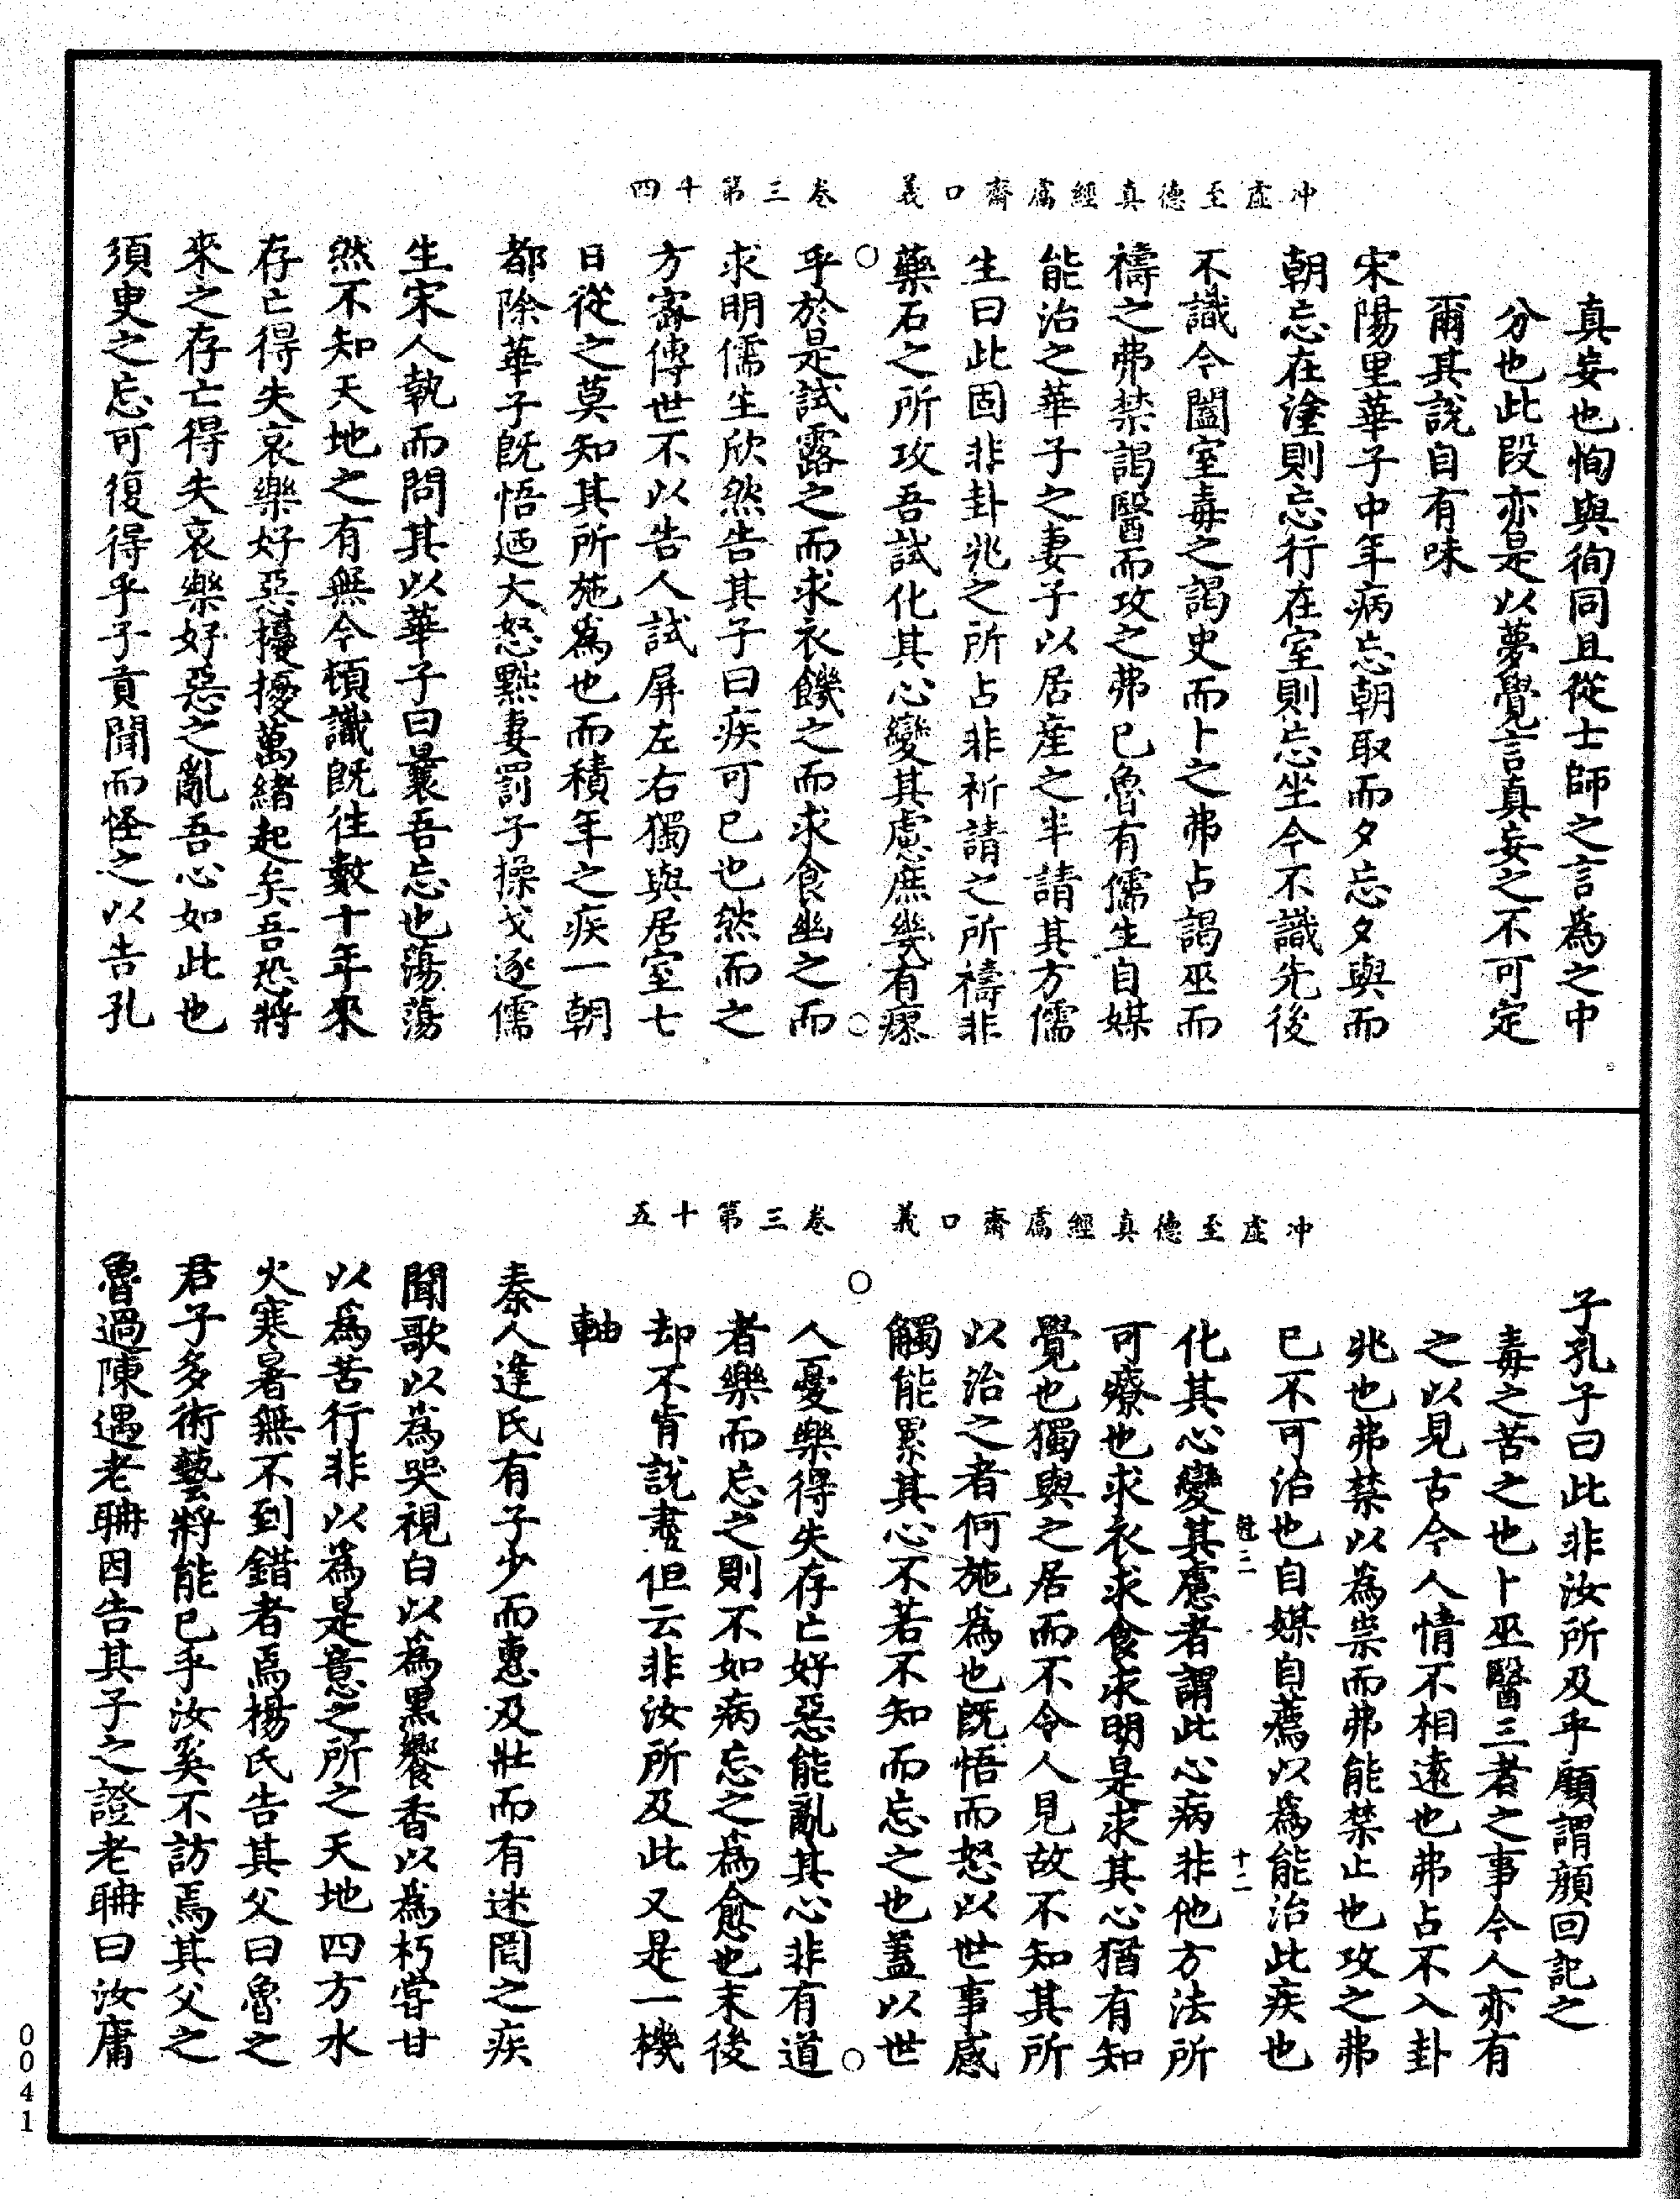 沖虛至德真經鬳齋口義　卷三第十四
真妄也恂與徇同且從士師之言為之中
分也此段亦是以夢覺言真妄之不可定
爾其說自有味
宋陽里華子中年病忘朝取而夕忘夕與而
朝忘在塗則忘行在室則忘坐今不識先後
不識今闔室毒之謁史而卜之弗占謁巫而
禱之弗禁謁醫而攻之弗已魯有儒生自媒
能治之華子之妻子以居產之半請其方儒
生曰此固非卦兆之所占非祈請之所禱非
藥石之所攻吾試化其心變其慮庶幾有瘳
乎於是試露之而求衣饑之而求食幽之而
求明儒生欣然告其子曰疾可已也然而之
方密傳世不以告人試屏左右獨與居室七
日從之莫知其所施為也而積年之疾一朝
都除華子既悟迺大怒黜妻罰子操戈逐儒
生宋人執而問其以華子曰曩吾忘也蕩蕩
然不知天地之有無今頓識既往數十年來
存亡得失哀樂好惡擾擾萬緒起矣吾恐將
來之存亡得失哀樂好惡之亂吾心如此也
須臾之忘可復得乎子貢聞而怪之以告孔
沖虛至德真經鬳齋口義　卷三第十五
子孔子曰此非汝所及乎顧謂顏回記之
毒之苦之也卜巫醫三者之事今人亦有
之以見古今人情不相遠也弗占不入卦
兆也弗禁以為祟而弗能禁止也攻之弗
已不可治也自媒自薦以為能治此疾也
魁二　十二
化其心變其慮者謂此心病非他方法所
可療也求衣求食求明是求其心猶有知
覺也獨與之居而不令人見故不知其所
以治之者何施為也既悟而怒以世事感
觸能累其心不若不知而忘之也蓋以世
人憂樂得失存亡好惡能亂其心非有道
者樂而忘之則不如病忘之為愈也末後
却不肯說盡但云非汝所及此又是一機
軸
秦人逢氏有子少而惠及壯而有迷罔之疾
聞歌以為哭視白以為黑饗香以為朽嘗甘
以為苦行非以為是意之所之天地四方水
火寒暑無不到錯者焉楊氏告其父曰魯之
君子多術藝將能已乎汝奚不訪焉其父之
魯過陳遇老聃因告其子之證老聃曰汝庸
0041